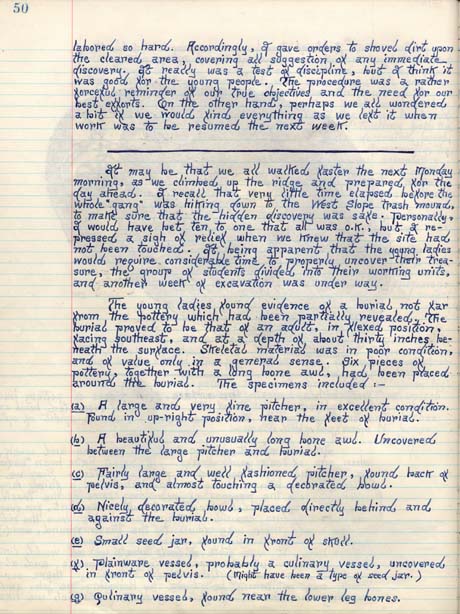 50
labored so hard. Accordingly, I gave orders to shovel dirt upon
the cleared area, covering all suggestion of any immediate
discovery. It really was a test of discipline, but I think it
was good for the young people. The procedure was a rather
forceful reminder of our true objectives and the need for our
best efforts. On the other hand, perhaps we all wondered
a bit if we would find everything as we left it when
work was to be resumed the next week.
It may be that we all walked faster the next Monday
morning, as we climbed up the ridge and prepared for the
day ahead. I recall that very little time elapsed before the
whole "gang" was hiking down to the West Slope trash mound,
to make sure that the hidden discovery was safe. Personally,
I would have bet ten to one that all was o.k.; but I re-
pressed a sigh of relief when we knew that the site had
not been touched. It being apparent that the young ladies
would require considerable time to properly uncover their trea-
sure, the group of students divided into their working units,
and another week of excavation was under way.
The young ladies found evidence of a burial not far
from the pottery which had been partially revealed. The
burial proved to be that of an adult, in flexed position,
facing southeast, and at a depth of about thirty inches be-
neath the surface. Skeletal material was in poor condition,
and of value only in a general sense. Six pieces of
pottery, together with a long bone awl, had been placed
around the burial. The specimens included :-
(a) A large and very fine pitcher, in excellent condition.
Found in up-right position, near the feet of burial.
(b) A beautiful and unusually long bone awl. Uncovered
between the large pitcher and burial.
(c) Fairly large and well fashioned pitcher, found back of
pelvis, and almost touching a decorated bowl.
(d) Nicely decorated bowl, placed directly behind and
against the burial.
(e) Small seed jar, found in front of skull.
(f) Plainware vessel, probably a culinary vessel, uncovered
in front of pelvis. (Might have been a type of seed jar.)
(g) Culinary vessel, found near the lower leg bones.